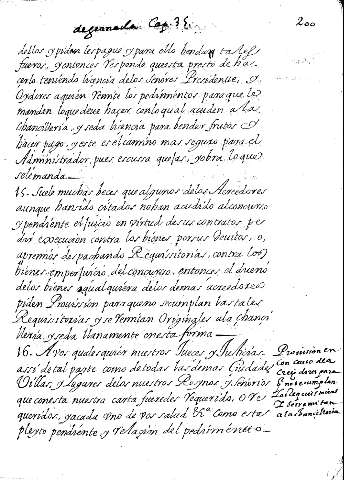 de granada Cap. 35. 200
dellos y piden les pague y para ello benden tales
fueros, y entonces Responde questa presto de ha-
cerlo teniendo licencia delos Señores Presidente, y
Oydores aquien Remite los pedimentos para que le
manden loque deve hacer conloqual acuden ala
chancilleria, y seda licencia para bender frutos y
hacer pago, y este es el camino mas seguro para el
Administrador, pues escussa quejas, y obra lo que
sele manda.
15. Suele muchas beces que algunos delos Acreedores
aunque han sido citados no han acudido al concurso
y pendiente el juicio en virtud desus contratos pi
den execucion contra los bienes por sus deuitos, o,
apremios despachando Requissitorias, contra los
bienes en perjuicio del concurso, entonces el dueno
delos bienes o qualquiera delos demas acreedores
piden Provission para que no se cumplan las tales
Requissitorias y se Remitan Originales ala chanci
lleria, y seda llanamente en esta forma
16. A vos qualesquier nuestros Jueces, y Justicias
assi de tal parte como de todas las demas Ciudades
Villas, y Lugares delos nuestros Reynos, y señorios
que con esta nuestra carta fueredes Requerido, o Re
queridos, y a cada uno de vos salud &ª. Como esta
pleyto pendiente, y Relacion del pedimiento
Provission en
concurso de a
creedores para
q no se cumplan
las Requissitorias
y se Remitan
ala chancilleria